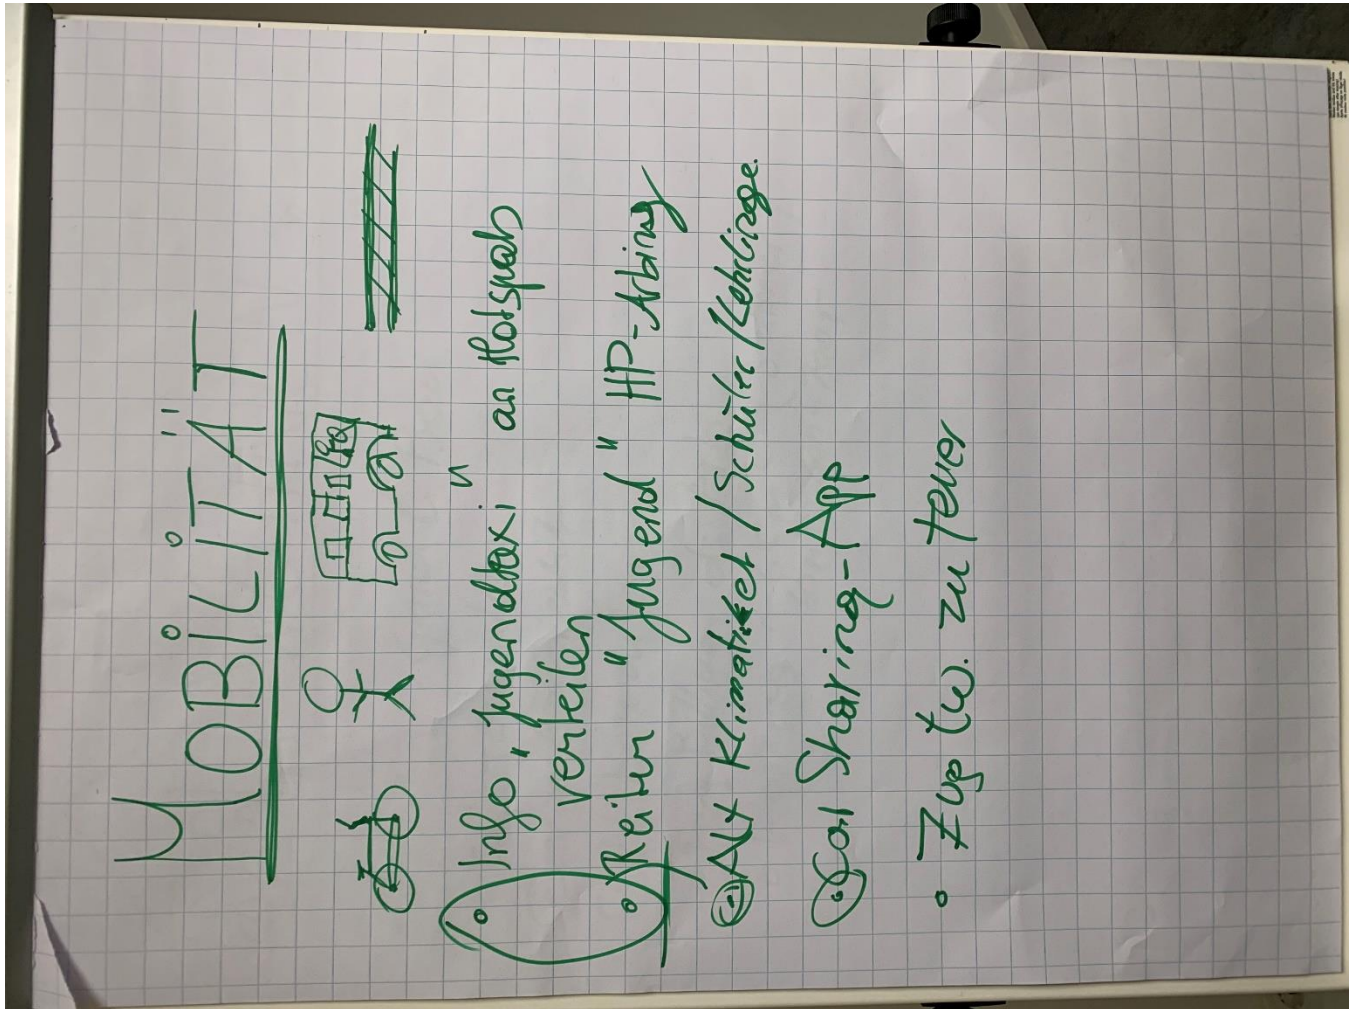 MOBILITÄT
Info "Jugendtaxi" an Hotspots
verteilen
Reiter "Jugend" HP-Arbing
Klimaticket / Schüler / Lehrlinge
Car Sharing-App
Zug tw. zu teuer